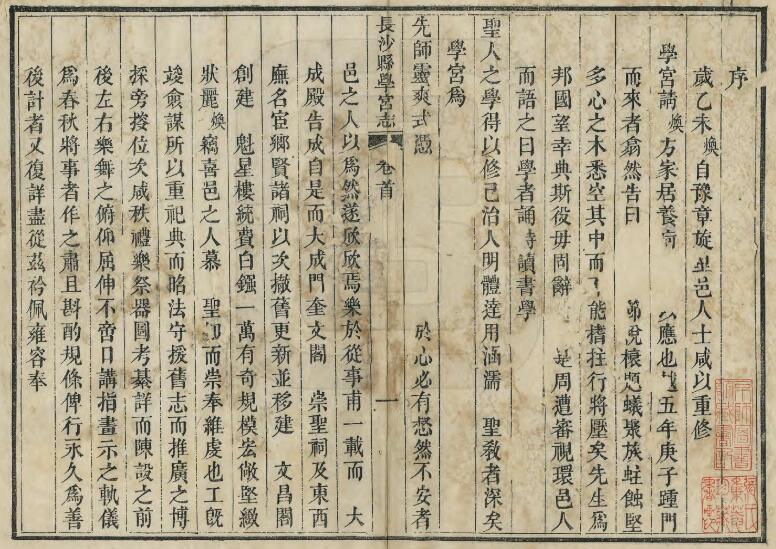 序
歲乙未煥自豫章旋 邑人士咸以重修
學宮請煥方家居養 應也 五年庚子踵門
而來者翕然告曰 榱題蟻聚族蛀蝕堅
多心之木悉空其中而 能搘拄行將壓矣先生爲
邦國望幸典斯役毋固辭 周遭審視環邑人
而語之曰學者誦詩讀書學
聖人之學得以修己治人明體達用涵濡 聖教者深矣
學宮爲
先師靈爽式憑 於心必有愁然不安者
長沙縣學宮志 卷首 一
邑之人以爲然遂欣欣焉樂於從事甫一載而 大
成殿告成自是而大成門奎文閣 崇聖祠及東西
廡名宦鄉賢諸祠以次撤舊更新並移建 文昌閣
創建 魁星樓統費白鏹一萬有奇規模宏敞堅緻
狀麗煥竊喜邑之人慕 聖 而崇奉維虔也工旣
竣僉謀所以重祀典而昭法守援舊志而推廣之博
採旁搜位次咸秩禮樂祭器圖考綦詳而陳設之前
後左右樂舞之俯仰屈伸不啻口講指畫示之軌儀
爲春秋將事者作之肅且斟酌規條俾行永久爲善
後計者又復詳盡從茲衿佩雍容奉